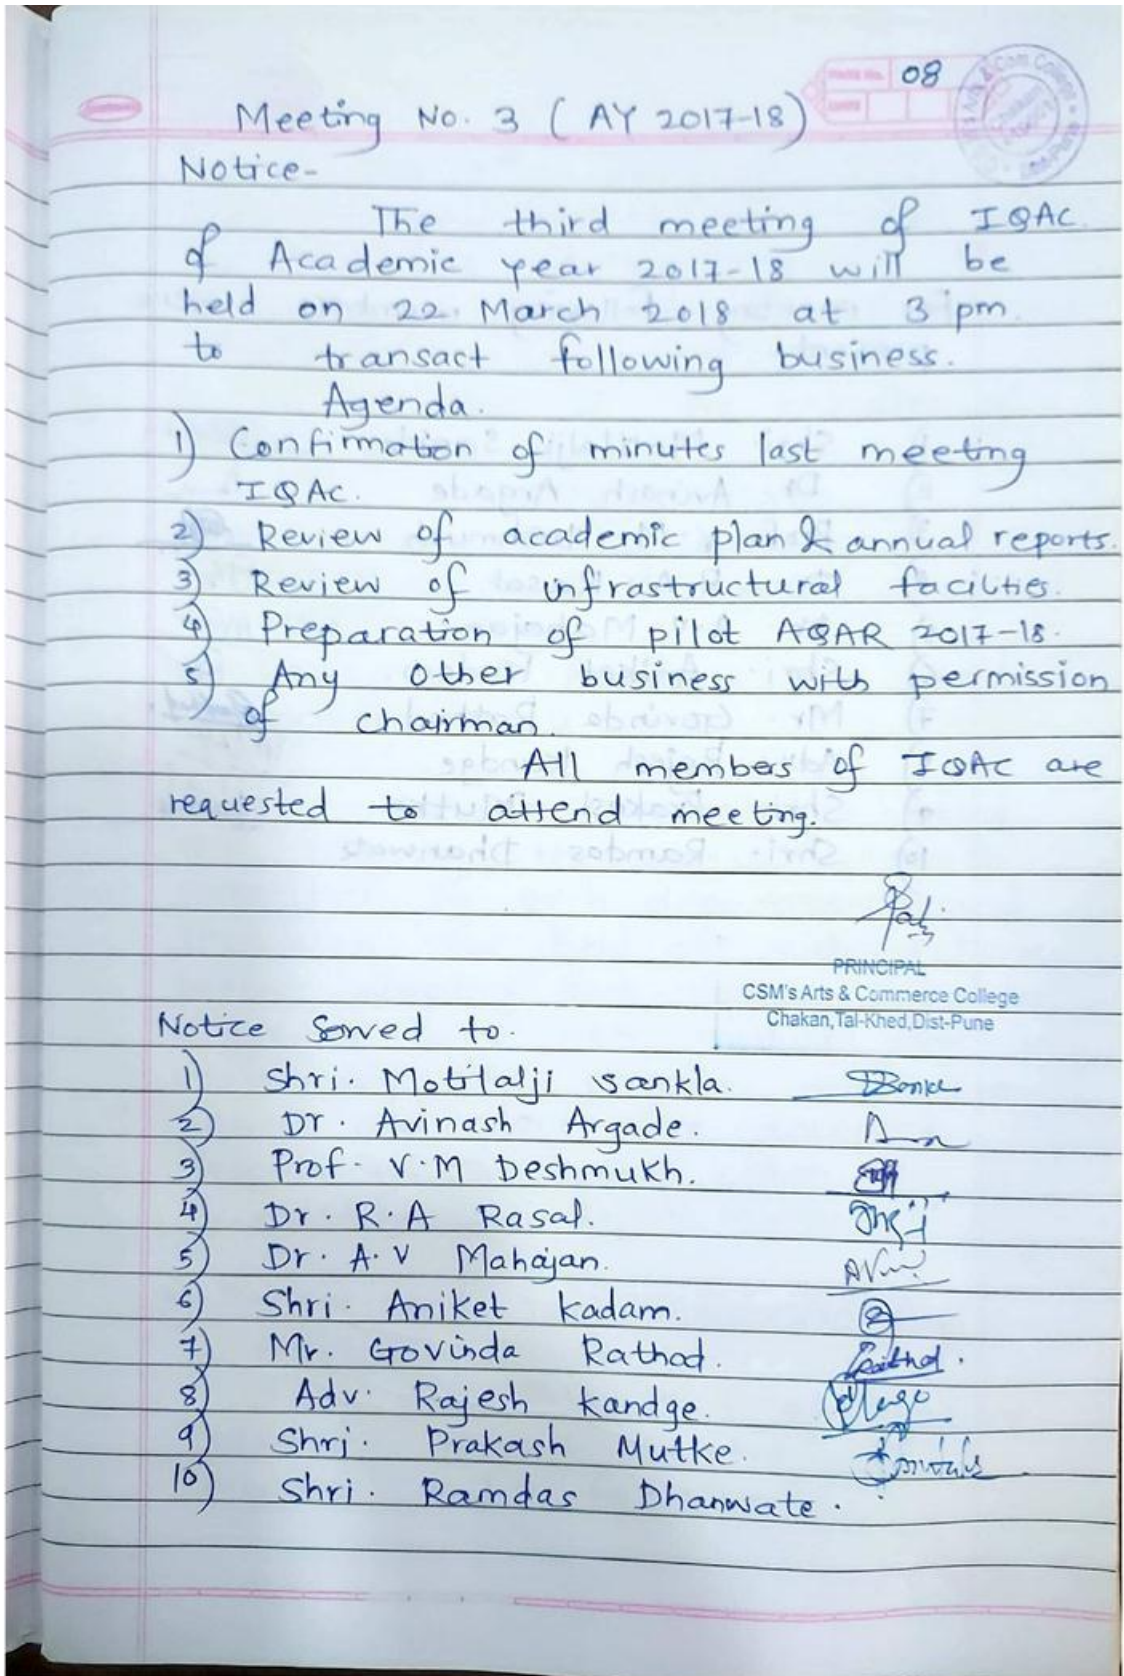 PAGE No. 08
DATE
Meeting No. 3 ( AY 2017-18)
Notice-
The third meeting of IQAC
of Academic year 2017-18 will be
held on 22 March 2018 at 3 pm
to transact following business.
Agenda.
1) Confirmation of minutes last meeting
IQAC.
2) Review of academic plan & annual reports.
3) Review of infrastructural facilities.
4) Preparation of pilot AQAR 2017-18.
5) Any other business with permission
of chairman.
All members of IQAC are
requested to attend meeting.
PRINCIPAL
CSM's Arts & Commerce College
Chakan, Tal-Khed, Dist-Pune
Notice Served to.
1) Shri. Motilalji sankla.
2) Dr. Avinash Argade.
3) Prof. V.M Deshmukh.
4) Dr. R.A Rasal.
5) Dr. A.V Mahajan.
6) Shri. Aniket kadam.
7) Mr. Govinda Rathod. Rathod.
8) Adv. Rajesh kandge.
9) Shri. Prakash Mutke.
10) Shri. Ramdas Dhanwate.